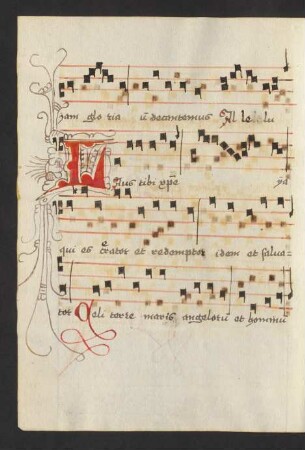 iam glo ria ū decantemus Al le lu
Laus tibi xp̄e ya
qui es creator et redemptor idem et salua=
tor Celi terre maris angelorū et hominū